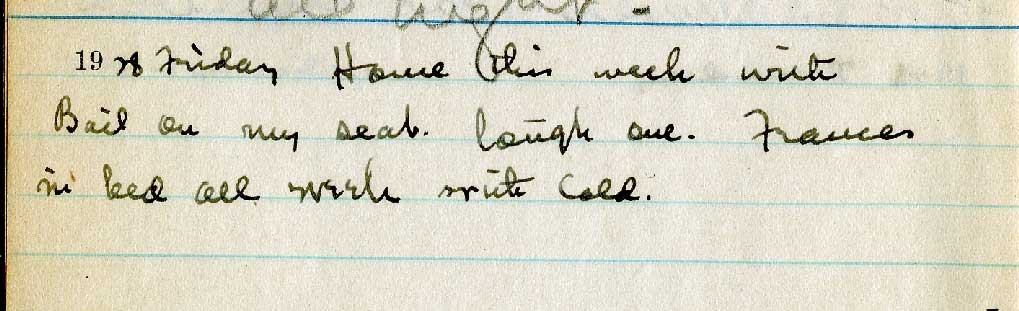 all right -
1938 Friday Home this week with
Bail on my seat. Cough one. Frances
in bed all week with Cold.